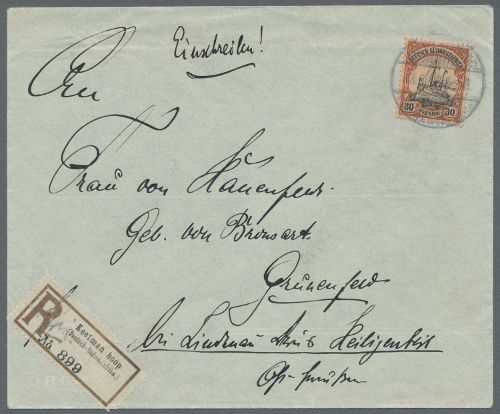 Einschreiben!
An
DEUTSCH-SÜDWESTAFRIKA
30 PFENNIG 30
Frau von Hanenfeldt
Geb. von Bronsart.
Grünenfeld
bei Lindenau Kreis Heiligenbeil
Ostpreußen
R
Keetmanshoop
(Deutsch-Südwestafrika.)
No 899